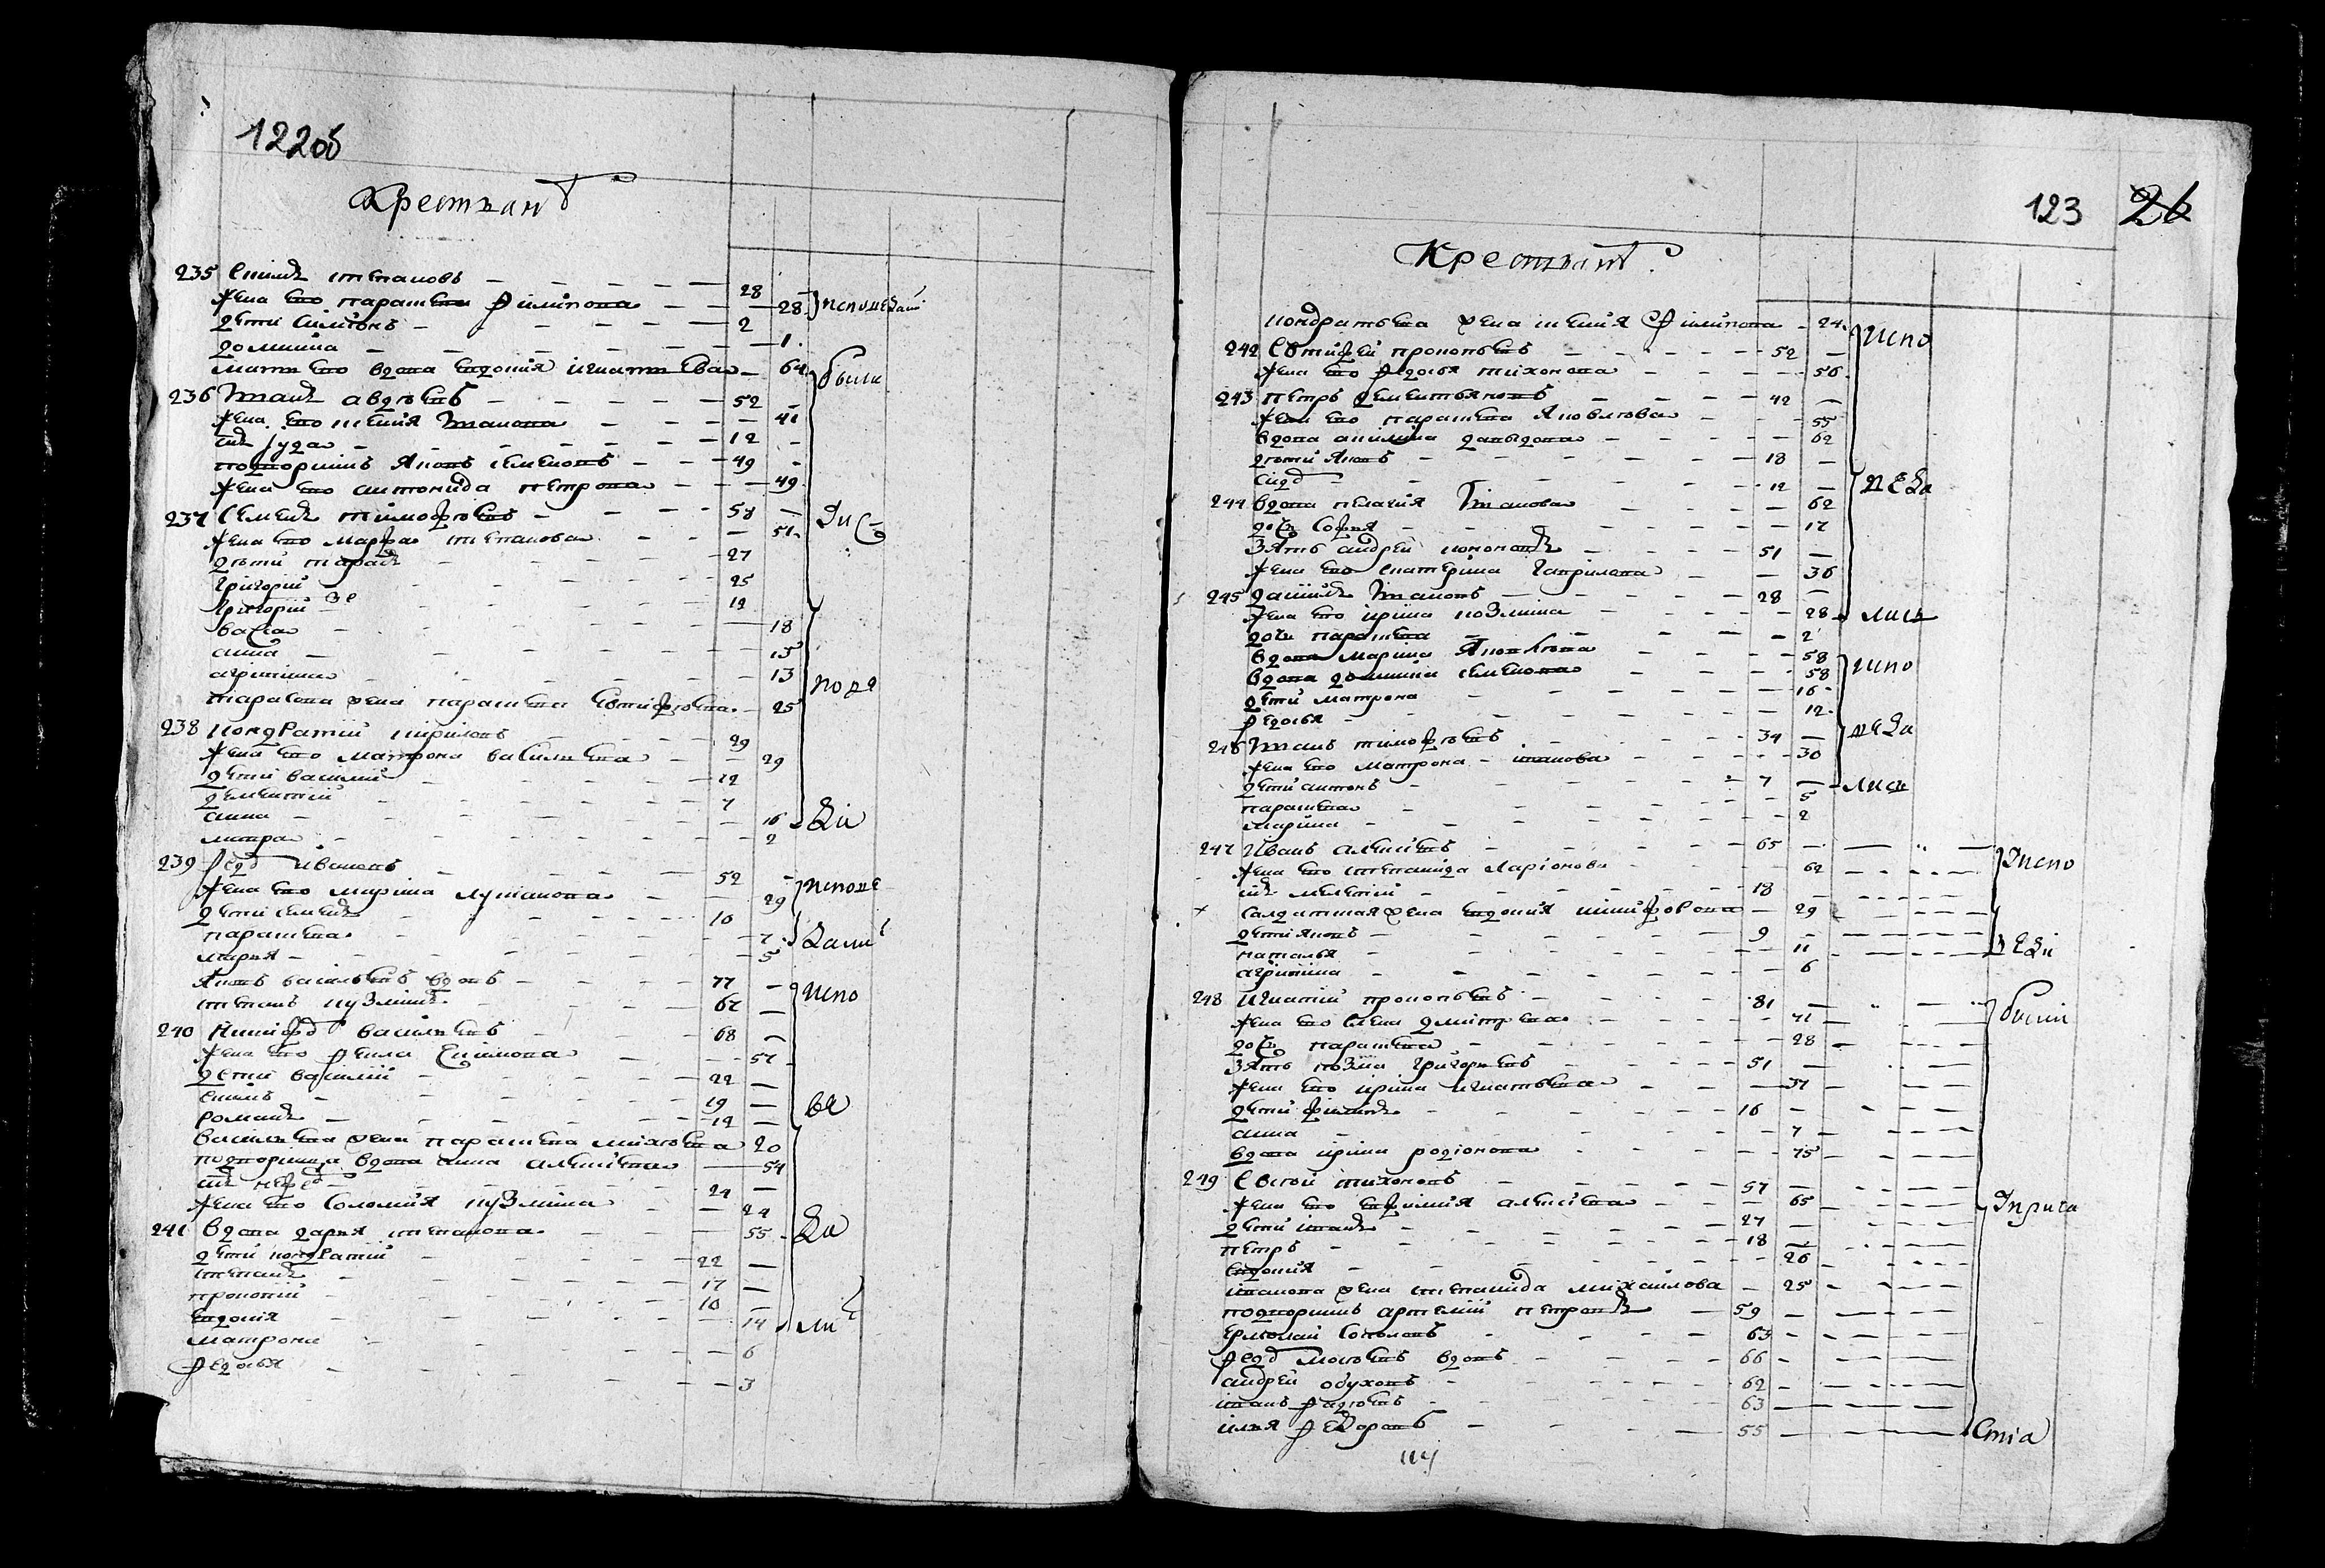 122об
Крестьянъ
235 Епимъ степановъ 28
Жена ево парасковя филипова 28 исповедай
дети Симионъ 2
домника 1
мати ево вдова евдокия игнатьева 64 были
236 Иванъ авдеевъ 52
Жена ево ксения Иванова 41
сын Иуда 12
подворникъ Яковъ семеновъ 49
Жена ево антонида петрова 49
237 Семенъ тимофеевъ 58 И С
Жена ево марфа степанова 51
дети тарасъ 27
григорий 25
григорий 3е 12
васса 18
анна 15
агрипина 13
тарасова жена парасковя 25
238 кондратий кириловъ 29
Жена ево матрона васильева 29
дети василий 12
дементий 7
анна 16
мавра 2
239 федоръ Ивановъ 52
Жена ево марина лукианова 29 испове
дети семенъ 10
парасковя 7
мария 5
Яковъ васильевъ вдовъ 77 испо
степанъ кузминъ 67
240 Никифоръ васильевъ 68
Жена ево фекла Екимова 57
дети василий 22
екимъ 19
романъ 12
васильева жена парасковя михеева 20
подворница вдова анна алексеева 54
сын 24
Жена ево Соломия кузмина 24
241 Вдова дария степанова 55
дети кондратий 22
степанъ 17
прокопий 10
евдокия 14
матрона 6
федосья 3
123 26
Крестьянъ
кондратьева жена ксения филипова 24 испо
242 Евтифей прокопьевъ 52
Жена ево федосья тихонова 56
243 петръ дементьяновъ 42
Жена ево парасковя Яковлева 55
вдова акилина давыдова 62
дети Яковъ 18
сидоръ 12
244 вдова пелагия Иванова 62
дочь София 17
Зять андрей 51
Жена ево екатерина гаврилова 36
245 данилъ Ивановъ 28
Жена ево ирина козмина 28
дочь парасковя 2
вдова марина Яковлева 58
вдова домника семенова 58 испо
дети матрона 16
федосья 12
246 Иванъ тимофеевъ 34
Жена ево матрона иванова 30
дети антонъ 7
парасковя 5
марина 2
247 Иванъ алексеевъ 65 испо
Жена ево степанида Ларионова 62
сын мелетий 18
салдатская жена евдокия никифорова 29
дети яковъ 9
наталья 11
агрипина 6
248 игнатий прокопьевъ 81
Жена ево Елена дмитрева 71
дочь парасковя 28
Зять козма григорьевъ 51
Жена ево ирина игнатьева 37
дети филипъ 16
анна 7
вдова ирина родионова 75
249 Евсей тихоновъ 57
Жена ево евфимия алексеева 65
дети иванъ 27
петръ 18
евдокия 26
иванова жена степанида михаилова 25
подворникъ артемий петровъ 59
ермолай Соколовъ 63
федоръ моисеевъ вдовъ 66
андрей обуховъ 62
иванъ фадеевъ 63
илья федоровъ 55